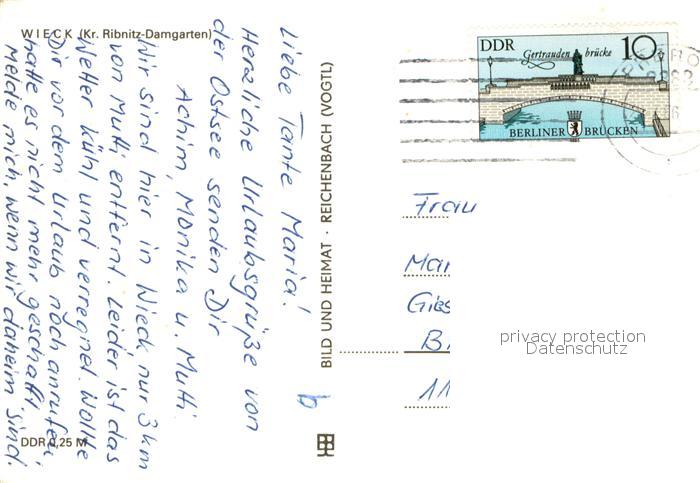 WIECK (Kr. Ribnitz-Damgarten)
Liebe Tante Maria!
Herzliche Urlaubsgrüße von
der Ostsee senden Dir
Achim, Monika u. Mutti.
Wir sind hier in Wieck nur 3 km
von Mutti entfernt. Leider ist das
Wetter kühl und verregnet. Wollte
Dir vor dem Urlaub noch anrufen,
hatte es nicht mehr geschafft.
Melde mich, wenn wir daheim sind.
DDR 0,25 M
BILD UND HEIMAT · REICHENBACH (VOGTL)
b
DDR
Gertrauden brücke
10
BERLINER BRÜCKEN
Frau
B.
11
privacy protection
Datenschutz